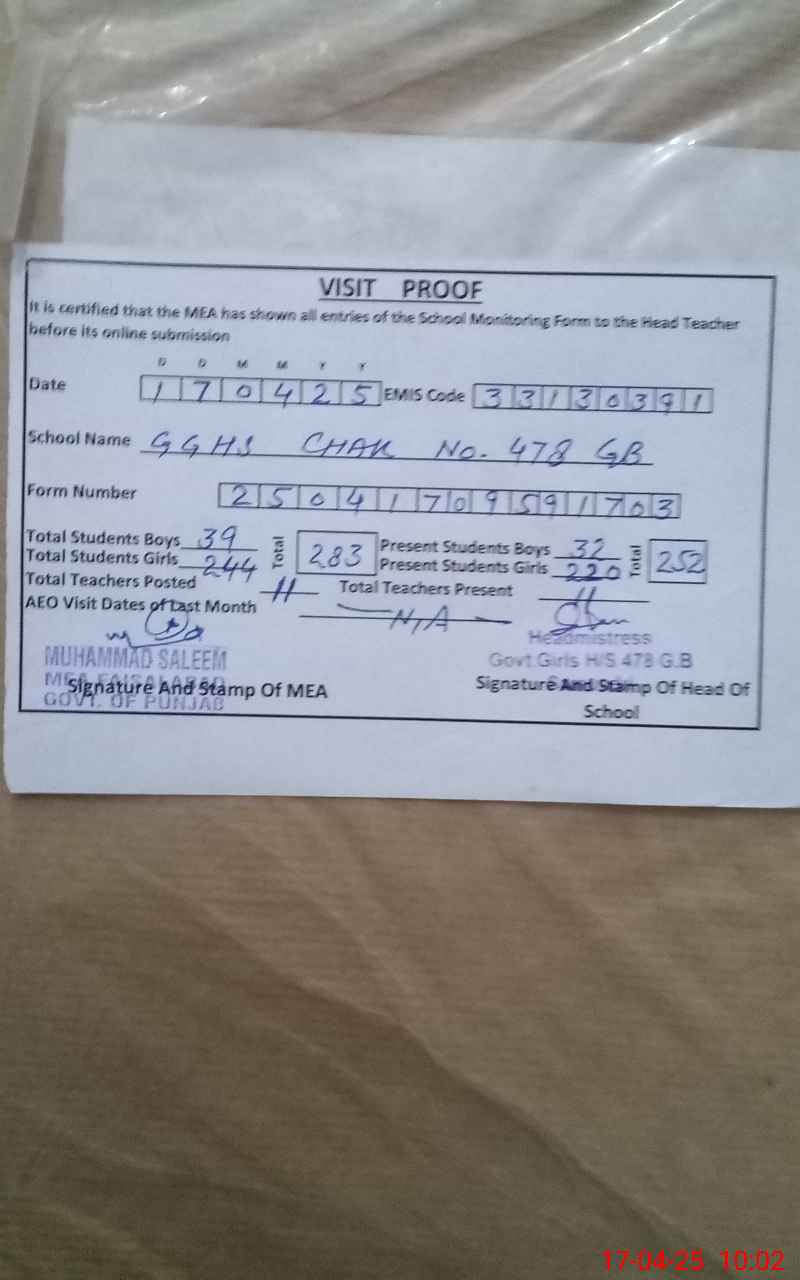 VISIT PROOF
It is certified that the MEA has shown all entries of the School Monitoring Form to the Head Teacher
before its online submission
D D M M Y Y
Date 1 7 0 4 2 5 EMIS Code 3 3 1 3 0 3 9 1
School Name GGHS CHAK No. 478 GB
Form Number 2 5 0 4 1 7 0 9 5 9 1 7 0 3
Total Students Boys 39 Total 283 Present Students Boys 32 Total 252
Total Students Girls 244 Present Students Girls 220
Total Teachers Posted 11 Total Teachers Present 11
AEO Visit Dates of Last Month N/A
Headmistress
MUHAMMAD SALEEM Govt.Girls H/S 478 G.B
MEA FAISALABAD
Signature And Stamp Of MEA Signature And Stamp Of Head Of
GOVT. OF PUNJAB School
17-04-25 10:02